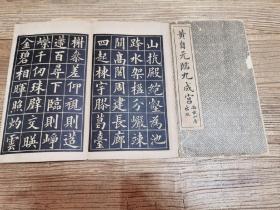 山抗殿絕壑為池
跨水架楹分巖竦
闕高閣周建長廊
四起棟宇膠葛
榭參差仰視則
百尋下臨則崢
嶸千仞珠璧交映
金碧相暉照灼雲
黃自元臨九成宮